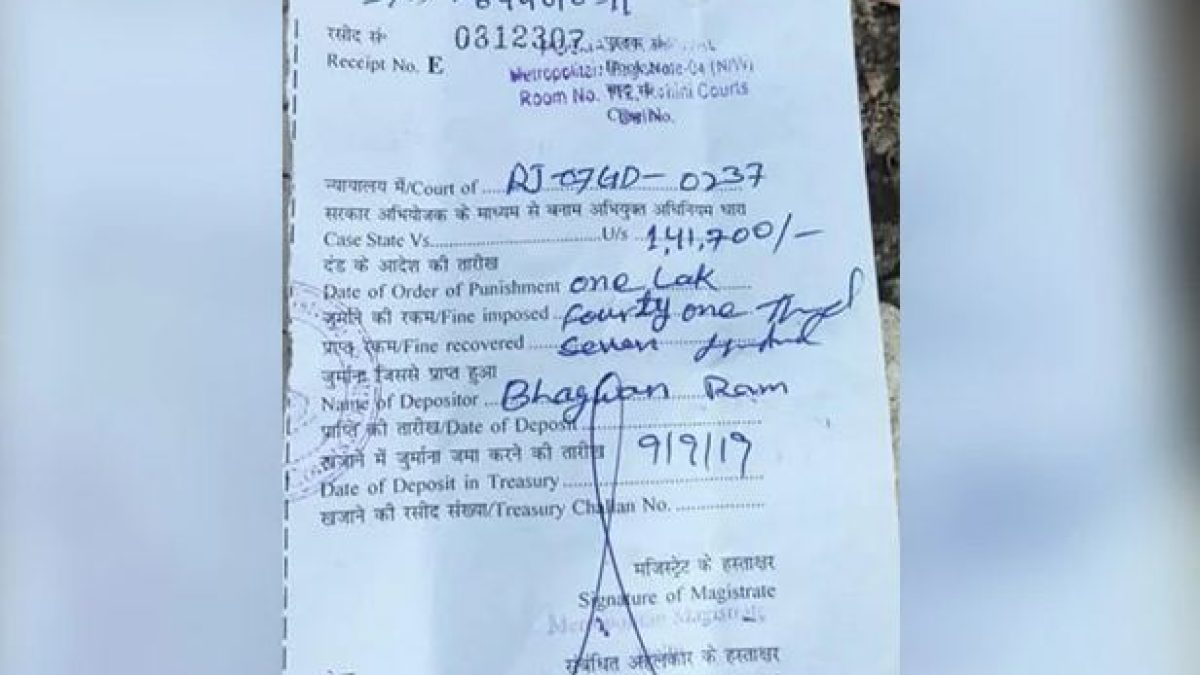 रसीद सं॰ 0312307
Receipt No. E
Room No. Courts
न्यायालय में/Court of RJ-07GD-0237
सरकार अभियोजक के माध्यम से बनाम अभियुक्त अधिनियम धारा
Case State Vs. U/s 1,41,700/-
दंड के आदेश की तारीख
Date of Order of Punishment one Lak
जुर्माने की रकम/Fine imposed Fourty one
प्राप्त रकम/Fine recovered seven
जुर्माना जिससे प्राप्त हुआ
Name of Depositor Bhagwan Ram
प्राप्ति की तारीख/Date of Deposit
खजाने में जुर्माना जमा करने की तारीख 9/9/19
Date of Deposit in Treasury
खजाने की रसीद संख्या/Treasury Challan No.
मजिस्ट्रेट के हस्ताक्षर
Signature of Magistrate
Metropolitan Magistrate
संबंधित अहलकार के हस्ताक्षर